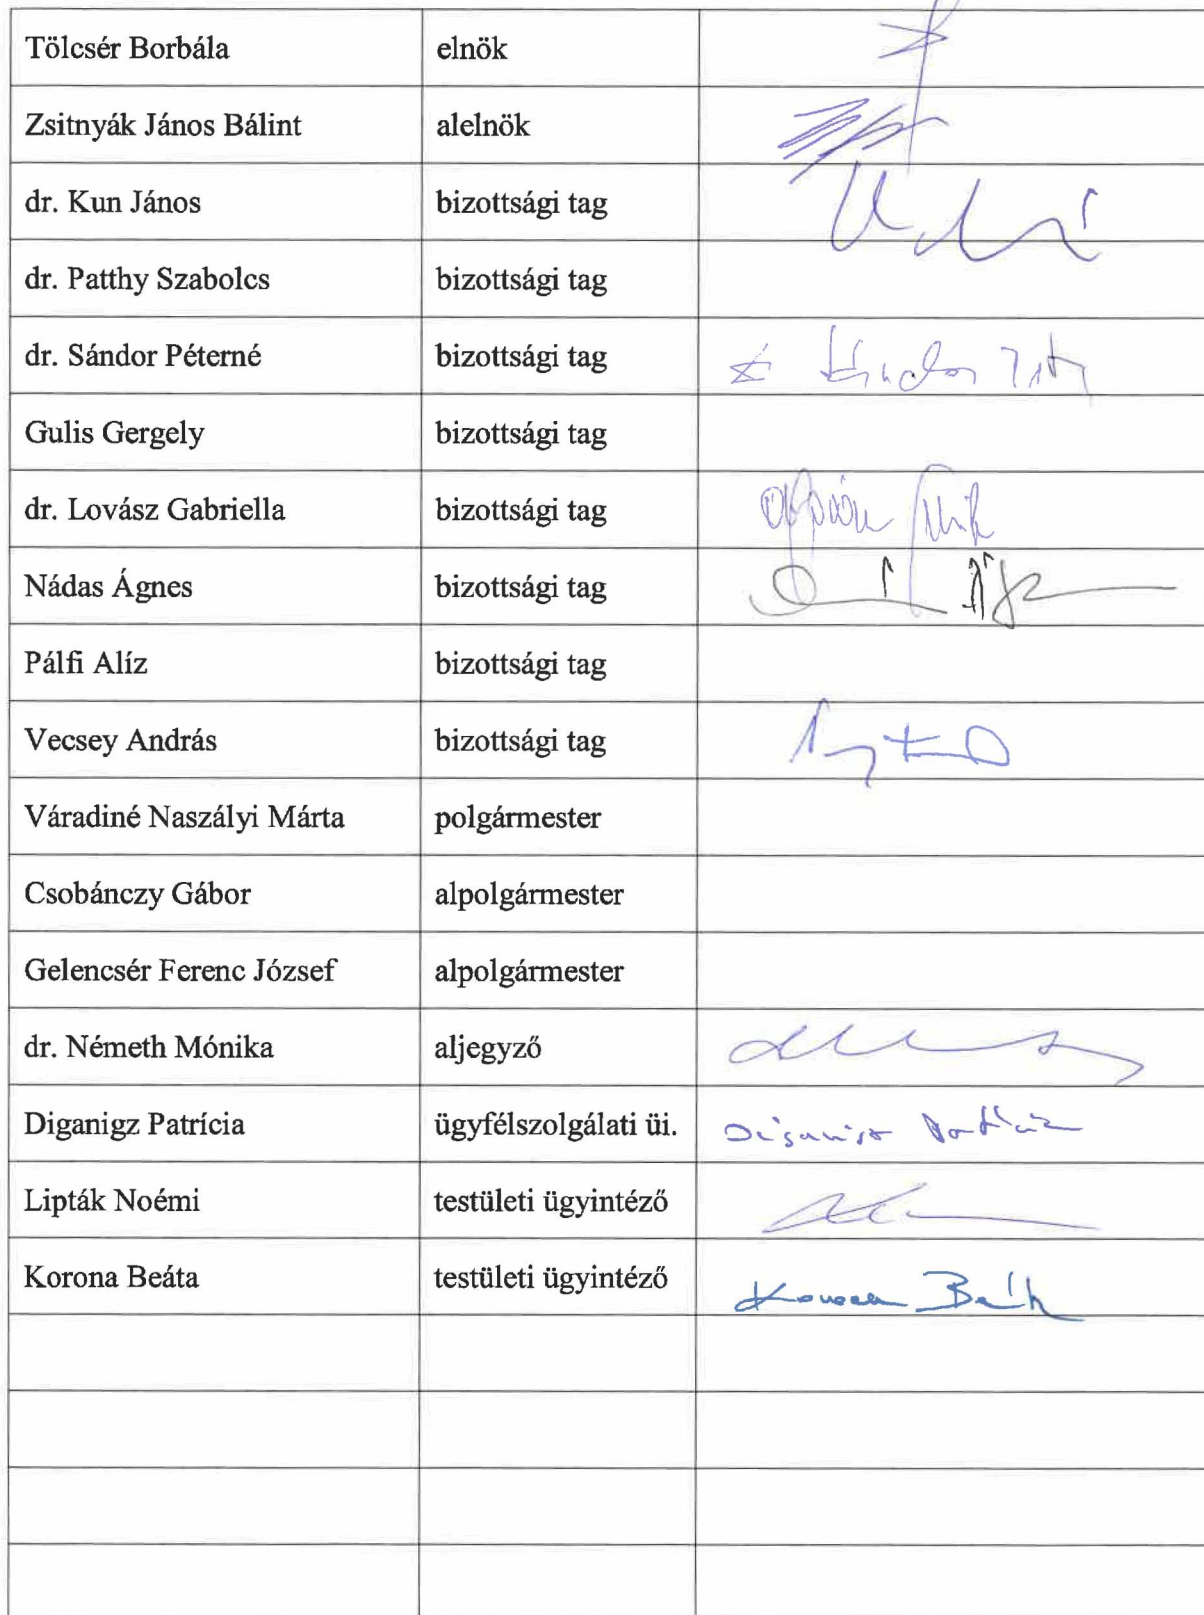 Tölcsér Borbála elnök
Zsitnyák János Bálint alelnök
dr. Kun János bizottsági tag
dr. Patthy Szabolcs bizottsági tag
dr. Sándor Péterné bizottsági tag
Gulis Gergely bizottsági tag
dr. Lovász Gabriella bizottsági tag
Nádas Ágnes bizottsági tag
Pálfi Alíz bizottsági tag
Vecsey András bizottsági tag
Váradiné Naszályi Márta polgármester
Csobánczy Gábor alpolgármester
Gelencsér Ferenc József alpolgármester
dr. Németh Mónika aljegyző
Diganigz Patrícia ügyfélszolgálati üi.
Lipták Noémi testületi ügyintéző
Korona Beáta testületi ügyintéző